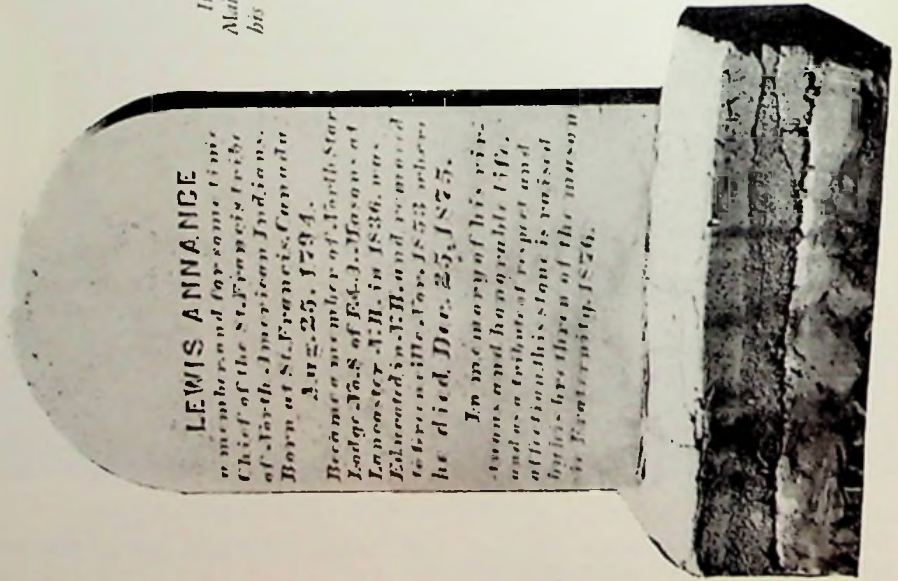 LEWIS ANNANCE
a member and for some time
Chief of the St. Francis tribe
of North American Indians.
Born at St. Francis Canada
Aug. 25, 1794.
Became a member of North Star
Lodge No. 8 of F.& A. Masons at
Lancaster N.H. in 1836. was
Educated in N.H. and removed
to Greenville Nov. 1853 where
he died, Dec. 25, 1875.
In memory of his vir-
tuous and honorable life,
and as a tribute of respect and
affection this stone is raised
by his brethren of the mason
ic Fraternity 1876.
his